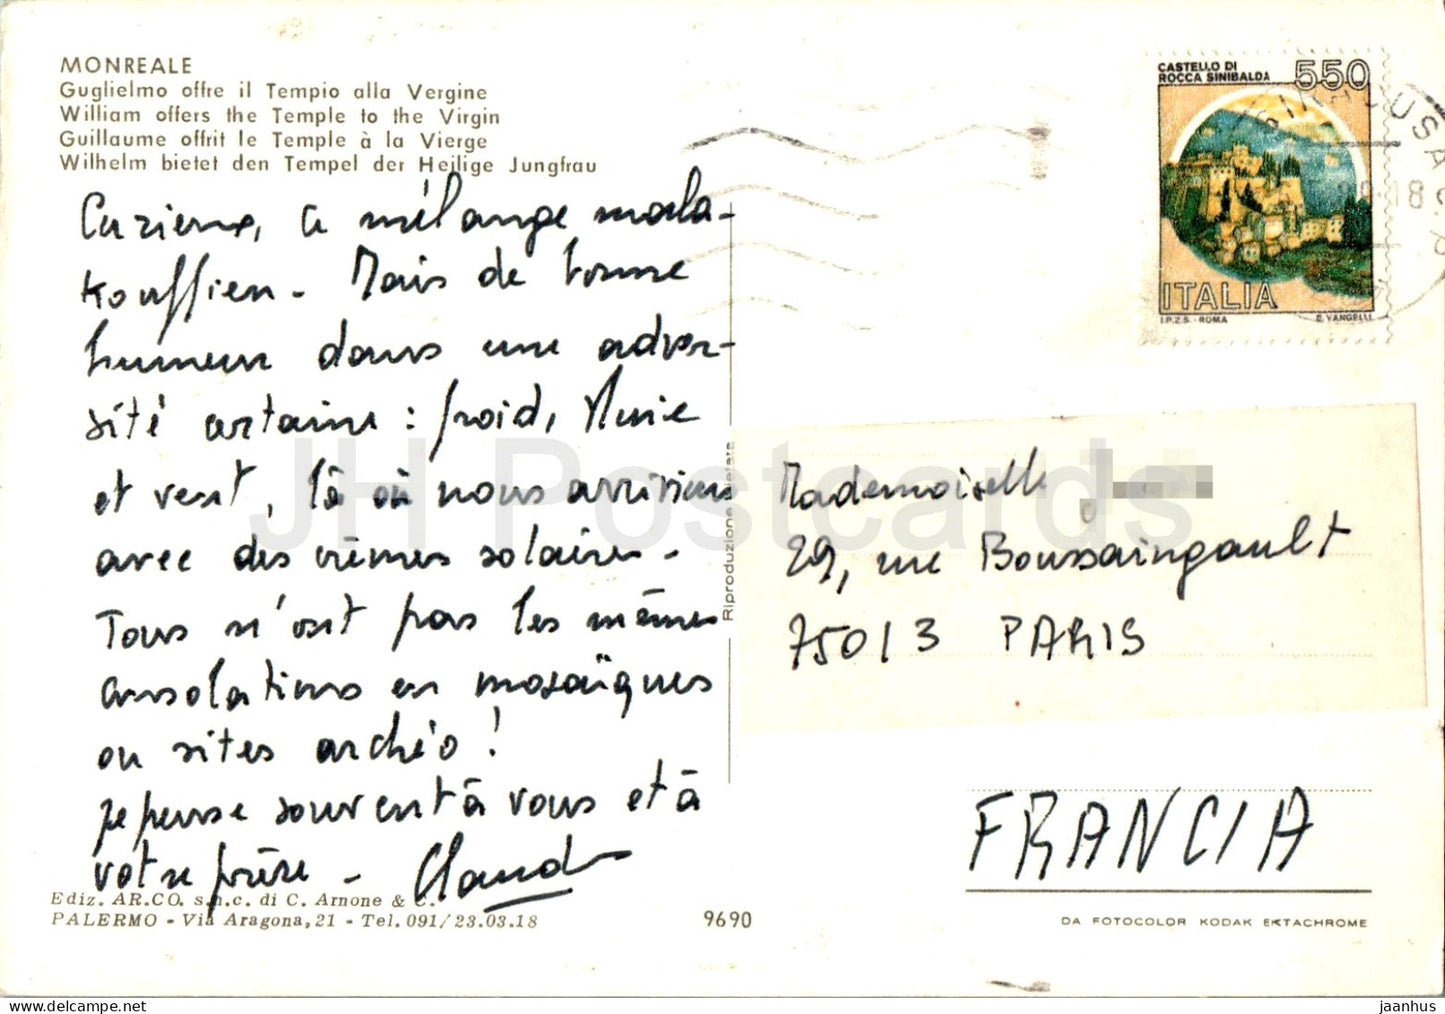 MONREALE
Guglielmo offre il Tempio alla Vergine
William offers the Temple to the Virgin
Guillaume offrit le Temple à la Vierge
Wilhelm bietet den Tempel der Heilige Jungfrau
Curieux, ce mélange mala-
kouffien. Mais de bonne
humeur dans une adver-
sité certaine : froid, pluie
et vent, là où nous arrivions
avec des crèmes solaires.
Tous n'ont pas les mêmes
consolations en mosaïques
ou sites archéo !
je pense souvent à vous et à
votre prière - Claude
Ediz. AR.CO. s.n.c. di C. Arnone & C.
PALERMO - Via Aragona, 21 - Tel. 091/23.03.18
9690
Riproduzione vietata
CASTELLO DI
ROCCA SINIBALDA
550
ITALIA
I.P.Z.S. - ROMA
E. VANGELLI
SIRACUSA
18
Mademoiselle
29, rue Boussaingault
75013 PARIS
FRANCIA
DA FOTOCOLOR KODAK EKTACHROME
JH Postcards
hippostcard.com
jaanhus